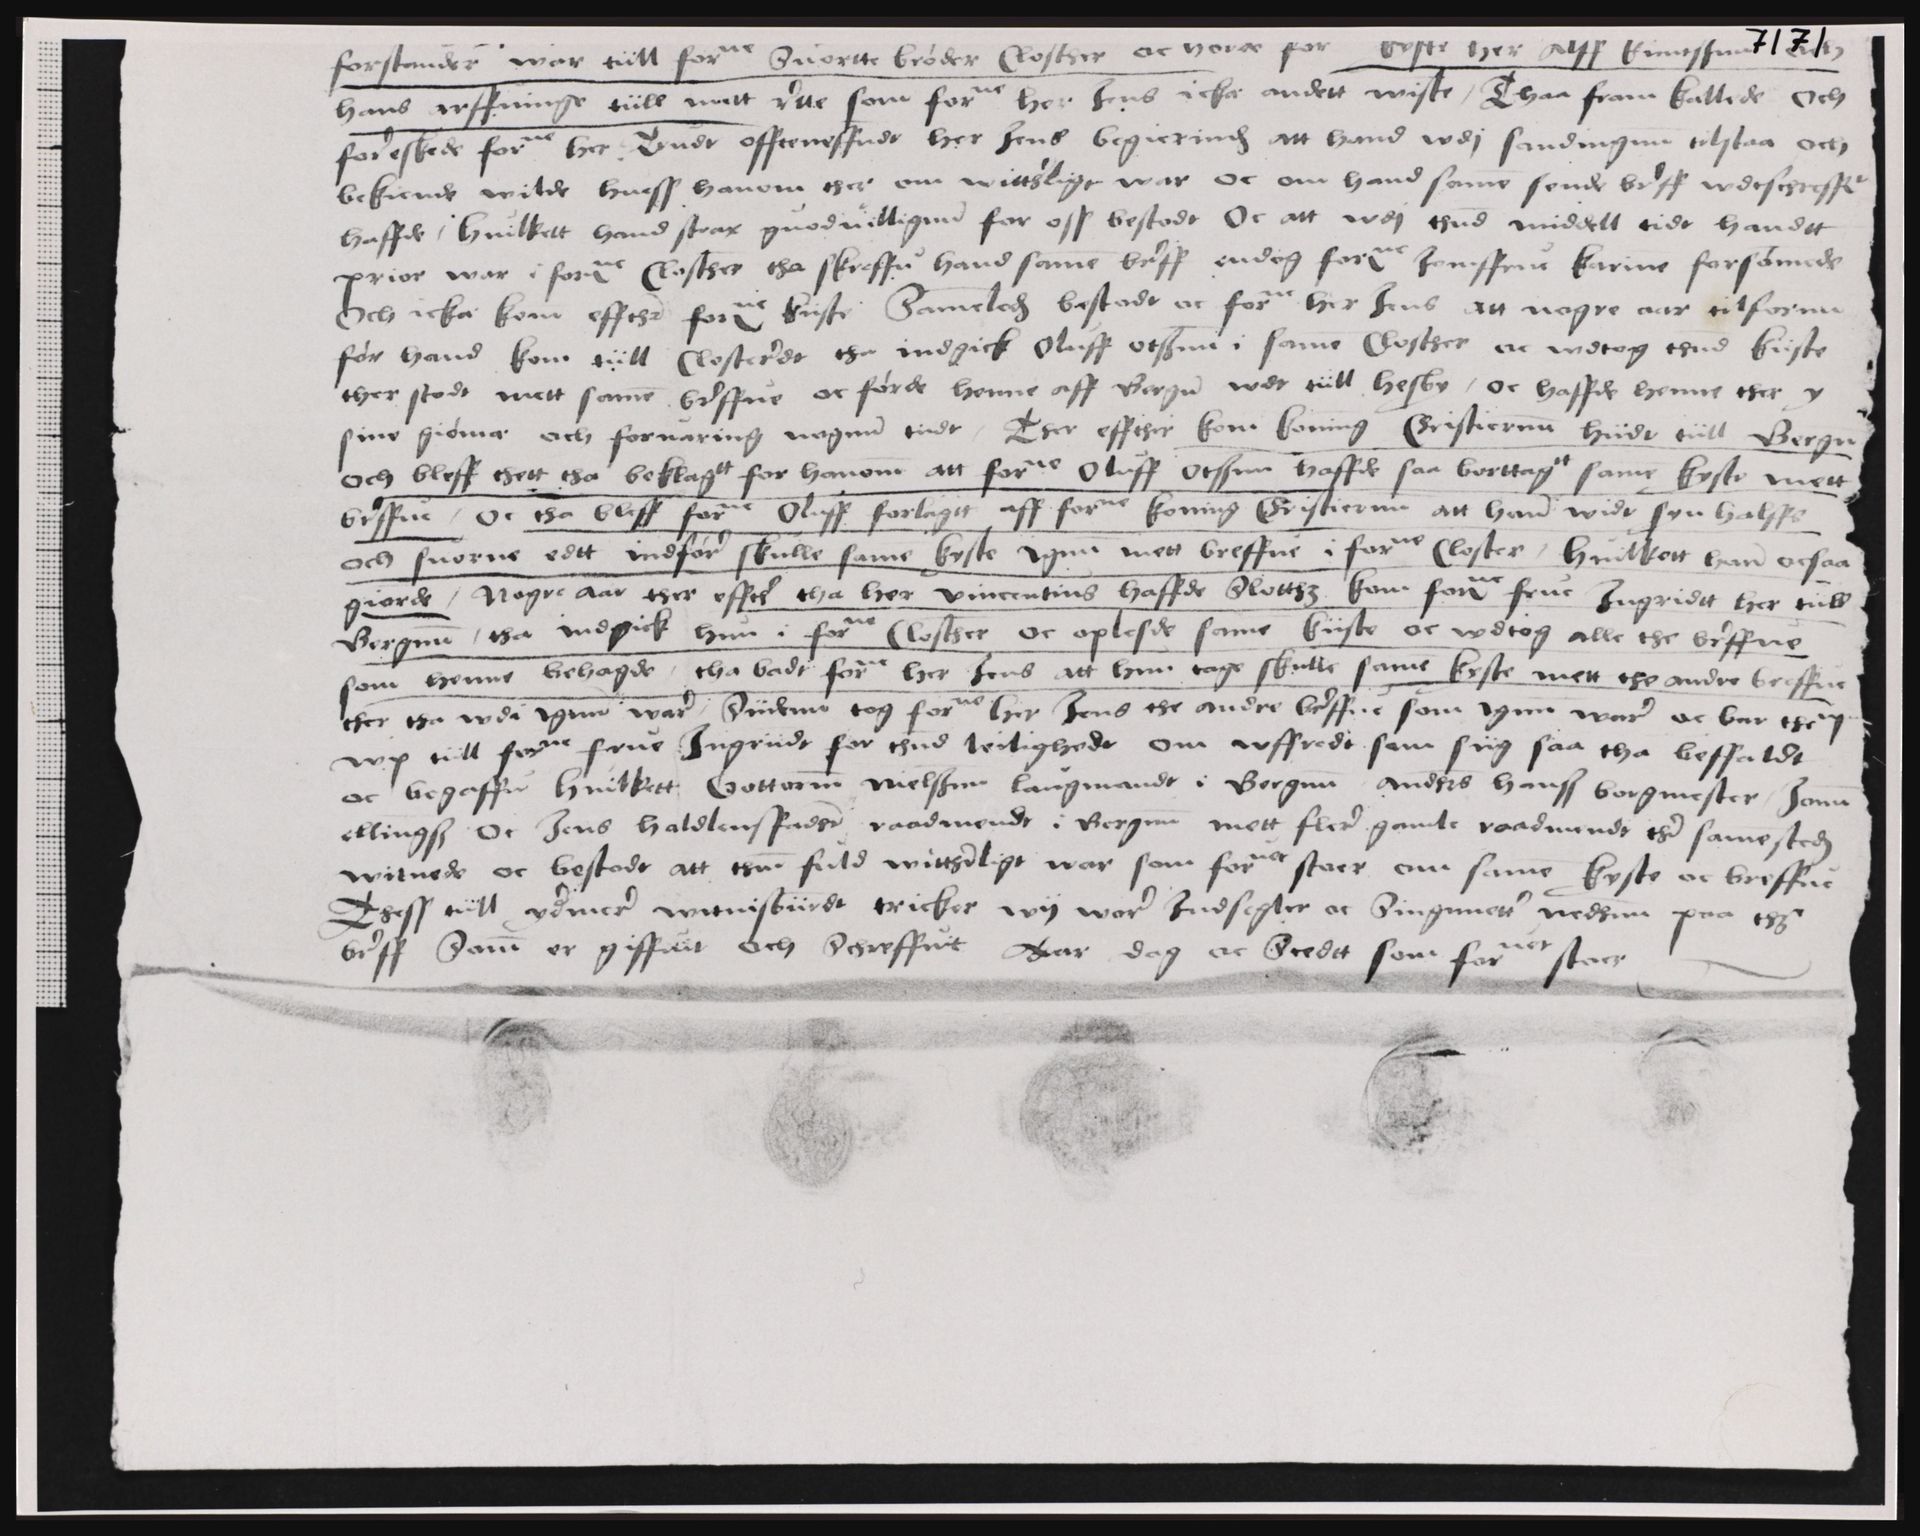 7171
forstander war tiill forne Suortte brøder Closther oc vore for kyste her Alff knutssun och
hans arffuinge tiill mett rette som forne her Jens icke andett wiste / Thaa fram kallede Och
foreskede forne her Trudt offteneffndt her Jens begierindis att hand wdj sandingenn tilstaa och
bekiende wilde huess hanom ther om witherligt war oc om hand same sende breff wdtschreffuet
haffde / huilkett hand strax guoduilligenn for oss bestodt Oc att wdj thend middell tidt handtt
prior war i forne Closther tha skreffu hand same breff endog forne Jomffrue karine forsømede
Och icke kom effther forne kiiste Sameledis bestodt oc forne her Jens att nogre aar tilfornn
før hand kom tiill Closteredt tha indgick Oluff otssønn i same Closther oc wdtog thend kiiste
ther stodt mett same breffue oc førde henne aff Bergenn wdt tiill hesby / oc haffde henne ther y
sine giømer och foruaring nogenn tiidt / Ther effther kom koning Cristiernn hiidt tiill Bergen
och bleff thett tha beklagtt for hanom att forne Oluff otssønn haffde saa borttagtt same kyste mett
breffue / Oc tha bleff forne Oluff forlagtt aff forne koning Cristiernn att hand widt syn halss
och suorne edtt indføre skulle same kyste igenn mett breffue i forne Closter / huilkett hand ocsaa
giorde / Nogre aar ther effther tha her vincentius haffde Slotthz kom forne frue Ingridtt her tiill
Bergenn / tha indgick hun i forne Closther oc oplesde same kiiste oc wdtog alle the breffue
som henne behagde / tha badt forne her Jens att hun tage skulle same kyste mett the andre breffue
ther tha wdi igenn ware / Siidenn tog forne her Jens the andre breffue som igenn ware oc bar thenn
wp tiill forne frue Ingriidt for thend leilighedt om wffredt som siig saa tha beffaldt
oc begaffu huilkett Gottorm nielssønn laugmandt i Bergenn Anders hanss borgmester / Jonn
ellings Oc Jens haldlenssfader raadmendt i Bergenn mett flere gamle raadmendt ther samesteds
witnede oc bestodt att them fuld wittherligt war som foruet staer om same kyste oc breffue
Thess tiill ydermere witnisbiirdt tricker wij wore Indsegler oc Singenetter nedhenn paa thz
breff Som er giffuit och Schreffuit Aar dag oc Stedtt som foruet staer